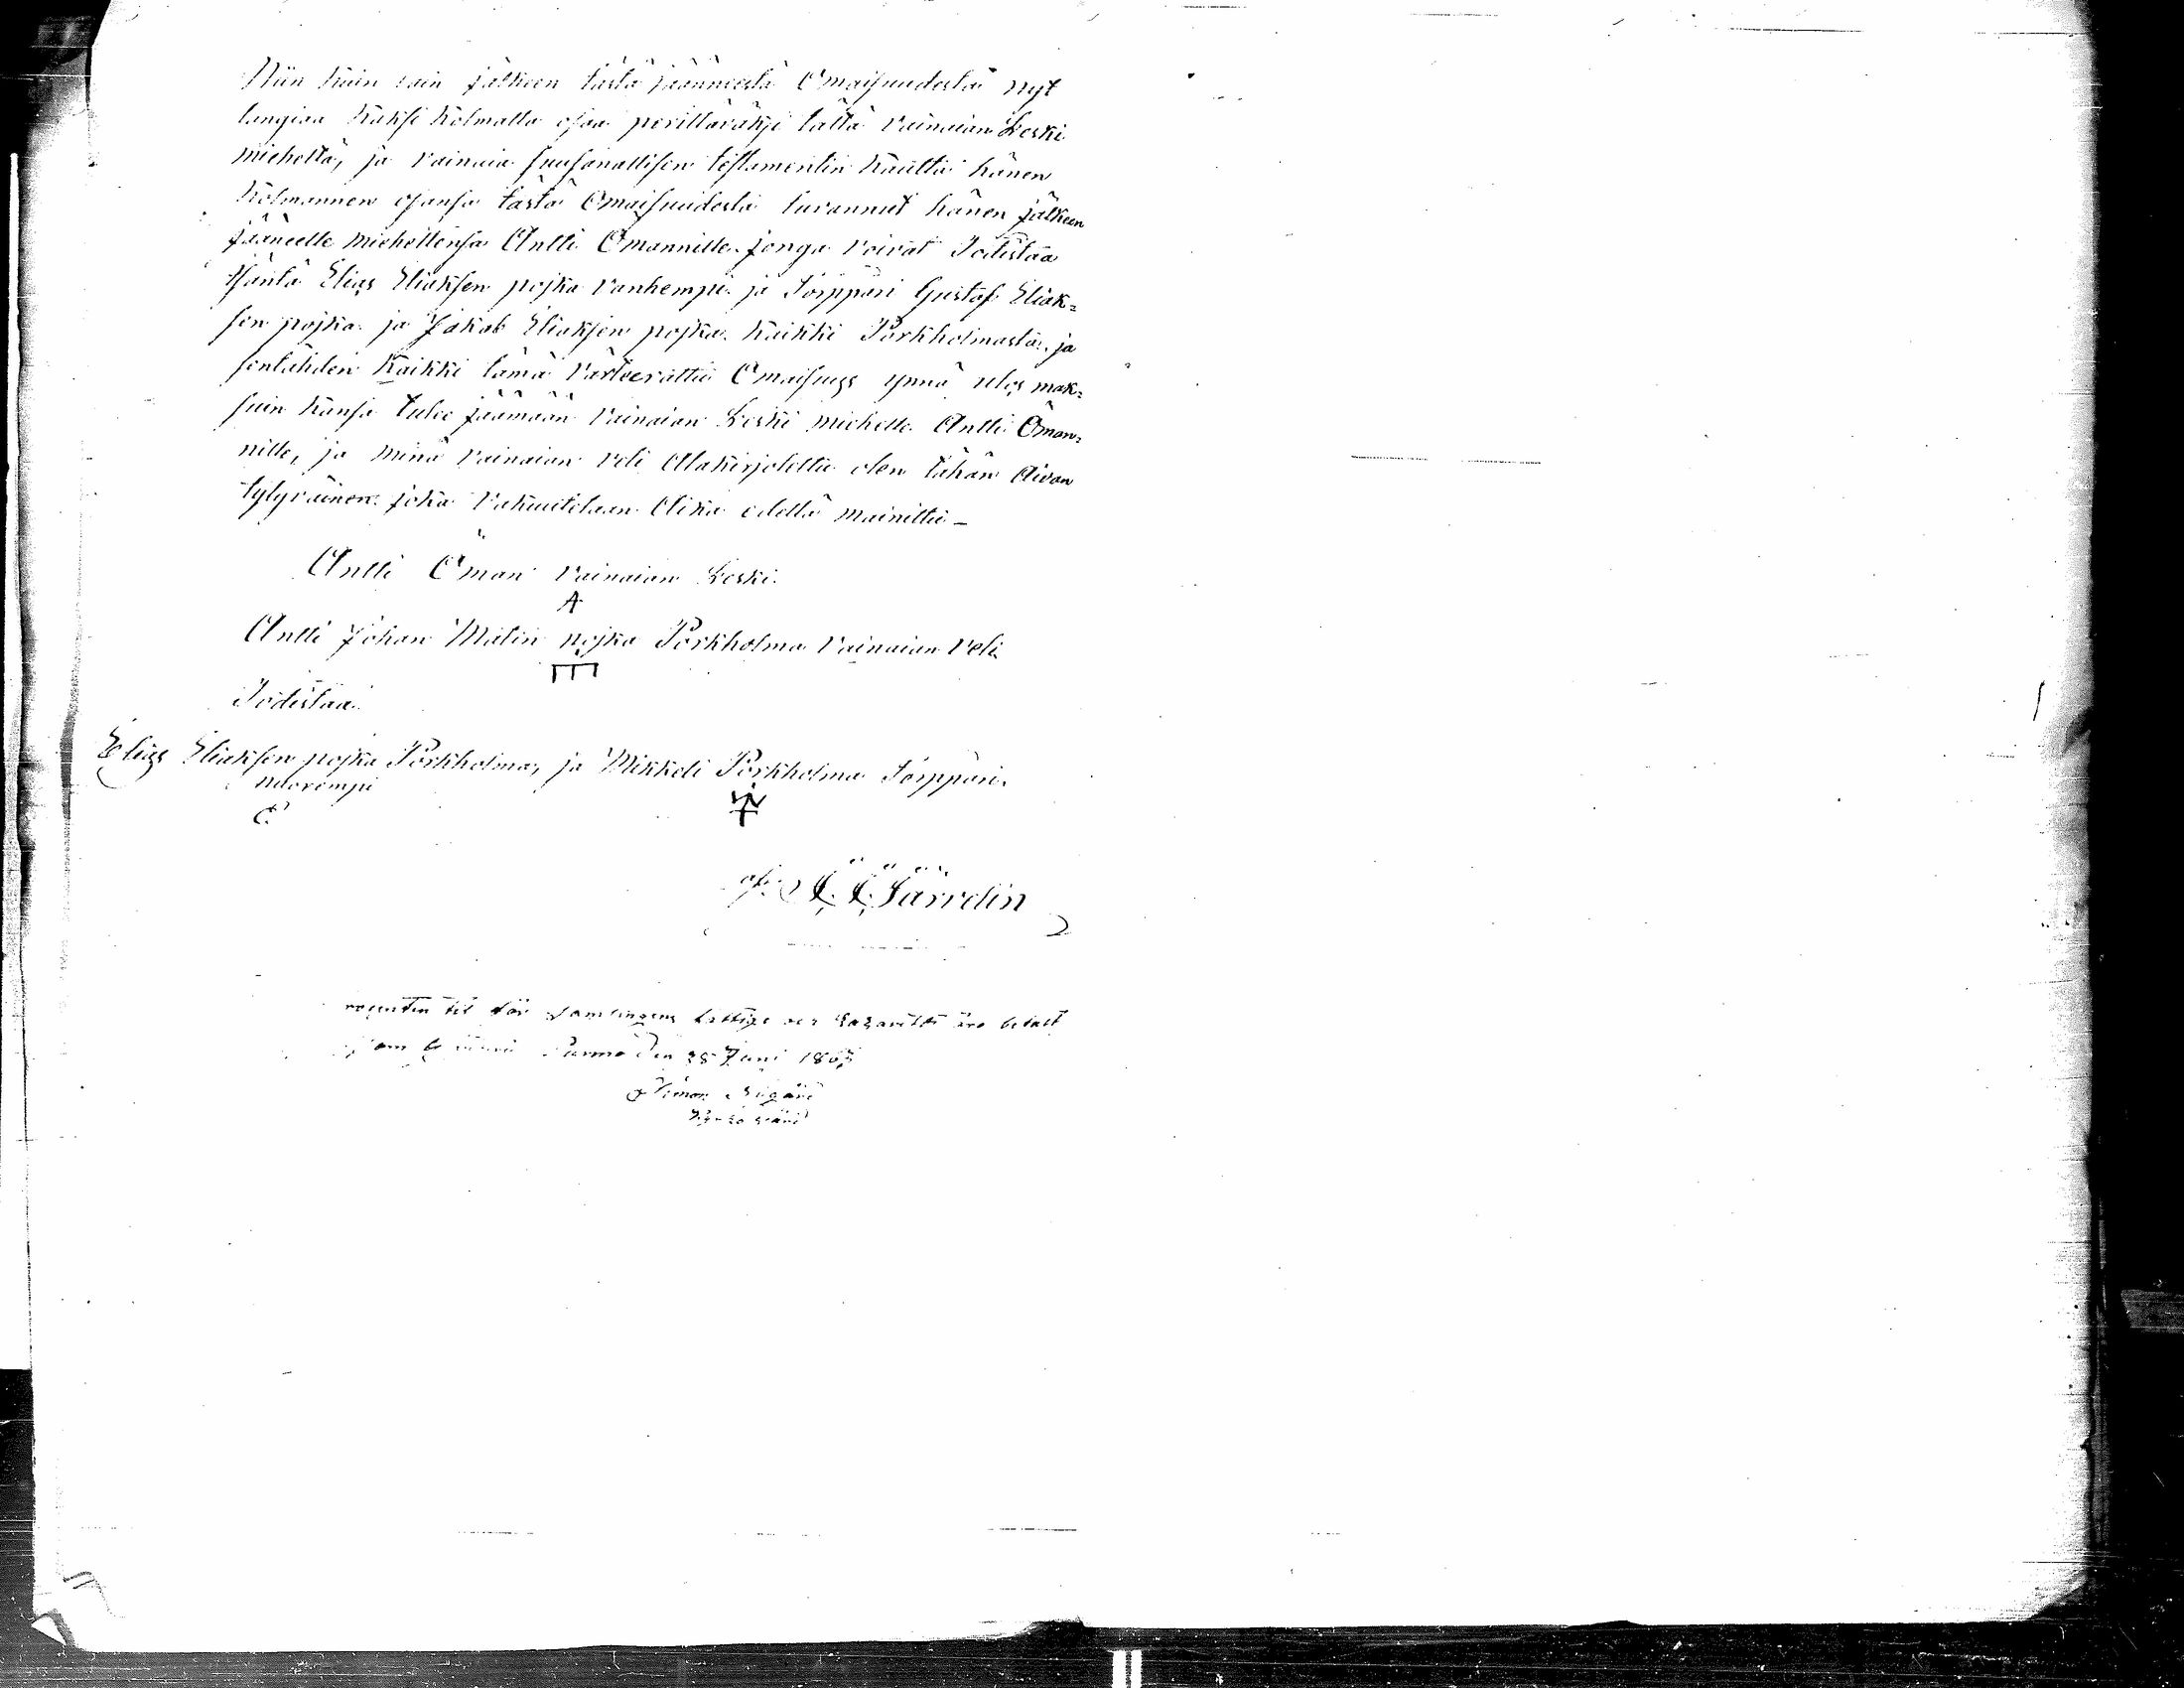 Niin kuin lain jälkeen tästä jäänneestä Omaisuudesta nyt
langiaa kaksi kolmatta osaa perittäväksi tältä vainaian Leski
mieheltä, ja vainaia suusanallisen testamentin kautta hänen
kolmannen osansa tästä Omaisuudesta luvannut hänen jälkeen
jääneelle miehellensä Antti Ömannille jonga voivat Todistaa
Isäntä Elias Eliaksen pojka vanhempi ja Torppari Gustaf Eliak=
sen pojka ja Jakob Eliaksen pojka kaikki Porkholmasta, ja
sentähden kaikki tämä värteerattu Omaisuus ynnä ulos mak=
suin kansa tulee jäämään vainaian Leski miehelle Antti Öman=
nille, ja minä vainaian veli Allakirjoitettu olen tähän Aivan
tytyväinen joka vakuutetaan Aika edellä mainittu –
Antti Öman vainaian Leski
A
Antti Johan Matin pojka Porkholma vainaian veli
Todistaa
Elias Eliaksen pojka Porkholma, ja Mikkeli Porkholma Torppari
Nuorempi
E
af. Järvelin
till för Samlingens fattige är betalt
den 28 Juni 1865
Simon